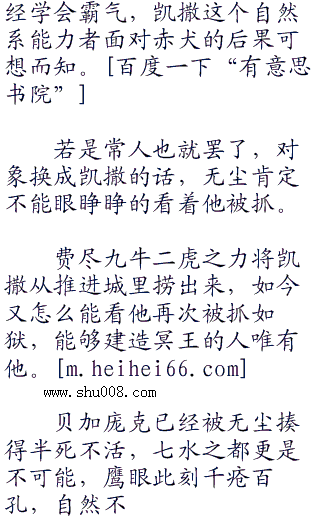 经学会霸气，凯撒这个自然
系能力者面对赤犬的后果可
想而知。[百度一下“有意思
书院”]
若是常人也就罢了，对
象换成凯撒的话，无尘肯定
不能眼睁睁的看着他被抓。
费尽九牛二虎之力将凯
撒从推进城里捞出来，如今
又怎么能看他再次被抓如
狱，能够建造冥王的人唯有
他。[m.heihei66.com]
www.shu008.com
贝加庞克已经被无尘揍
得半死不活，七水之都更是
不可能，鹰眼此刻千疮百
孔，自然不